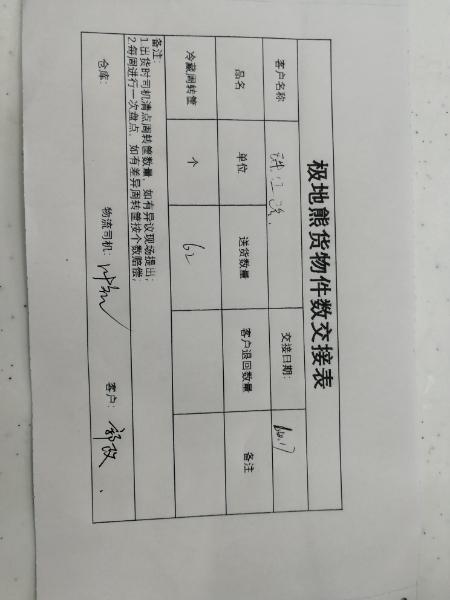 极地熊货物件数交接表
客户名称 交接日期:
品名 单位 送货数量 客户退回数量 备注
冷藏周转筐 个 62
备注:
1.出货时司机清点周转筐数量,如有异议现场提出;
2.每周进行一次盘点,如有差异周转筐按个数赔偿;
仓库: 物流司机: 客户: